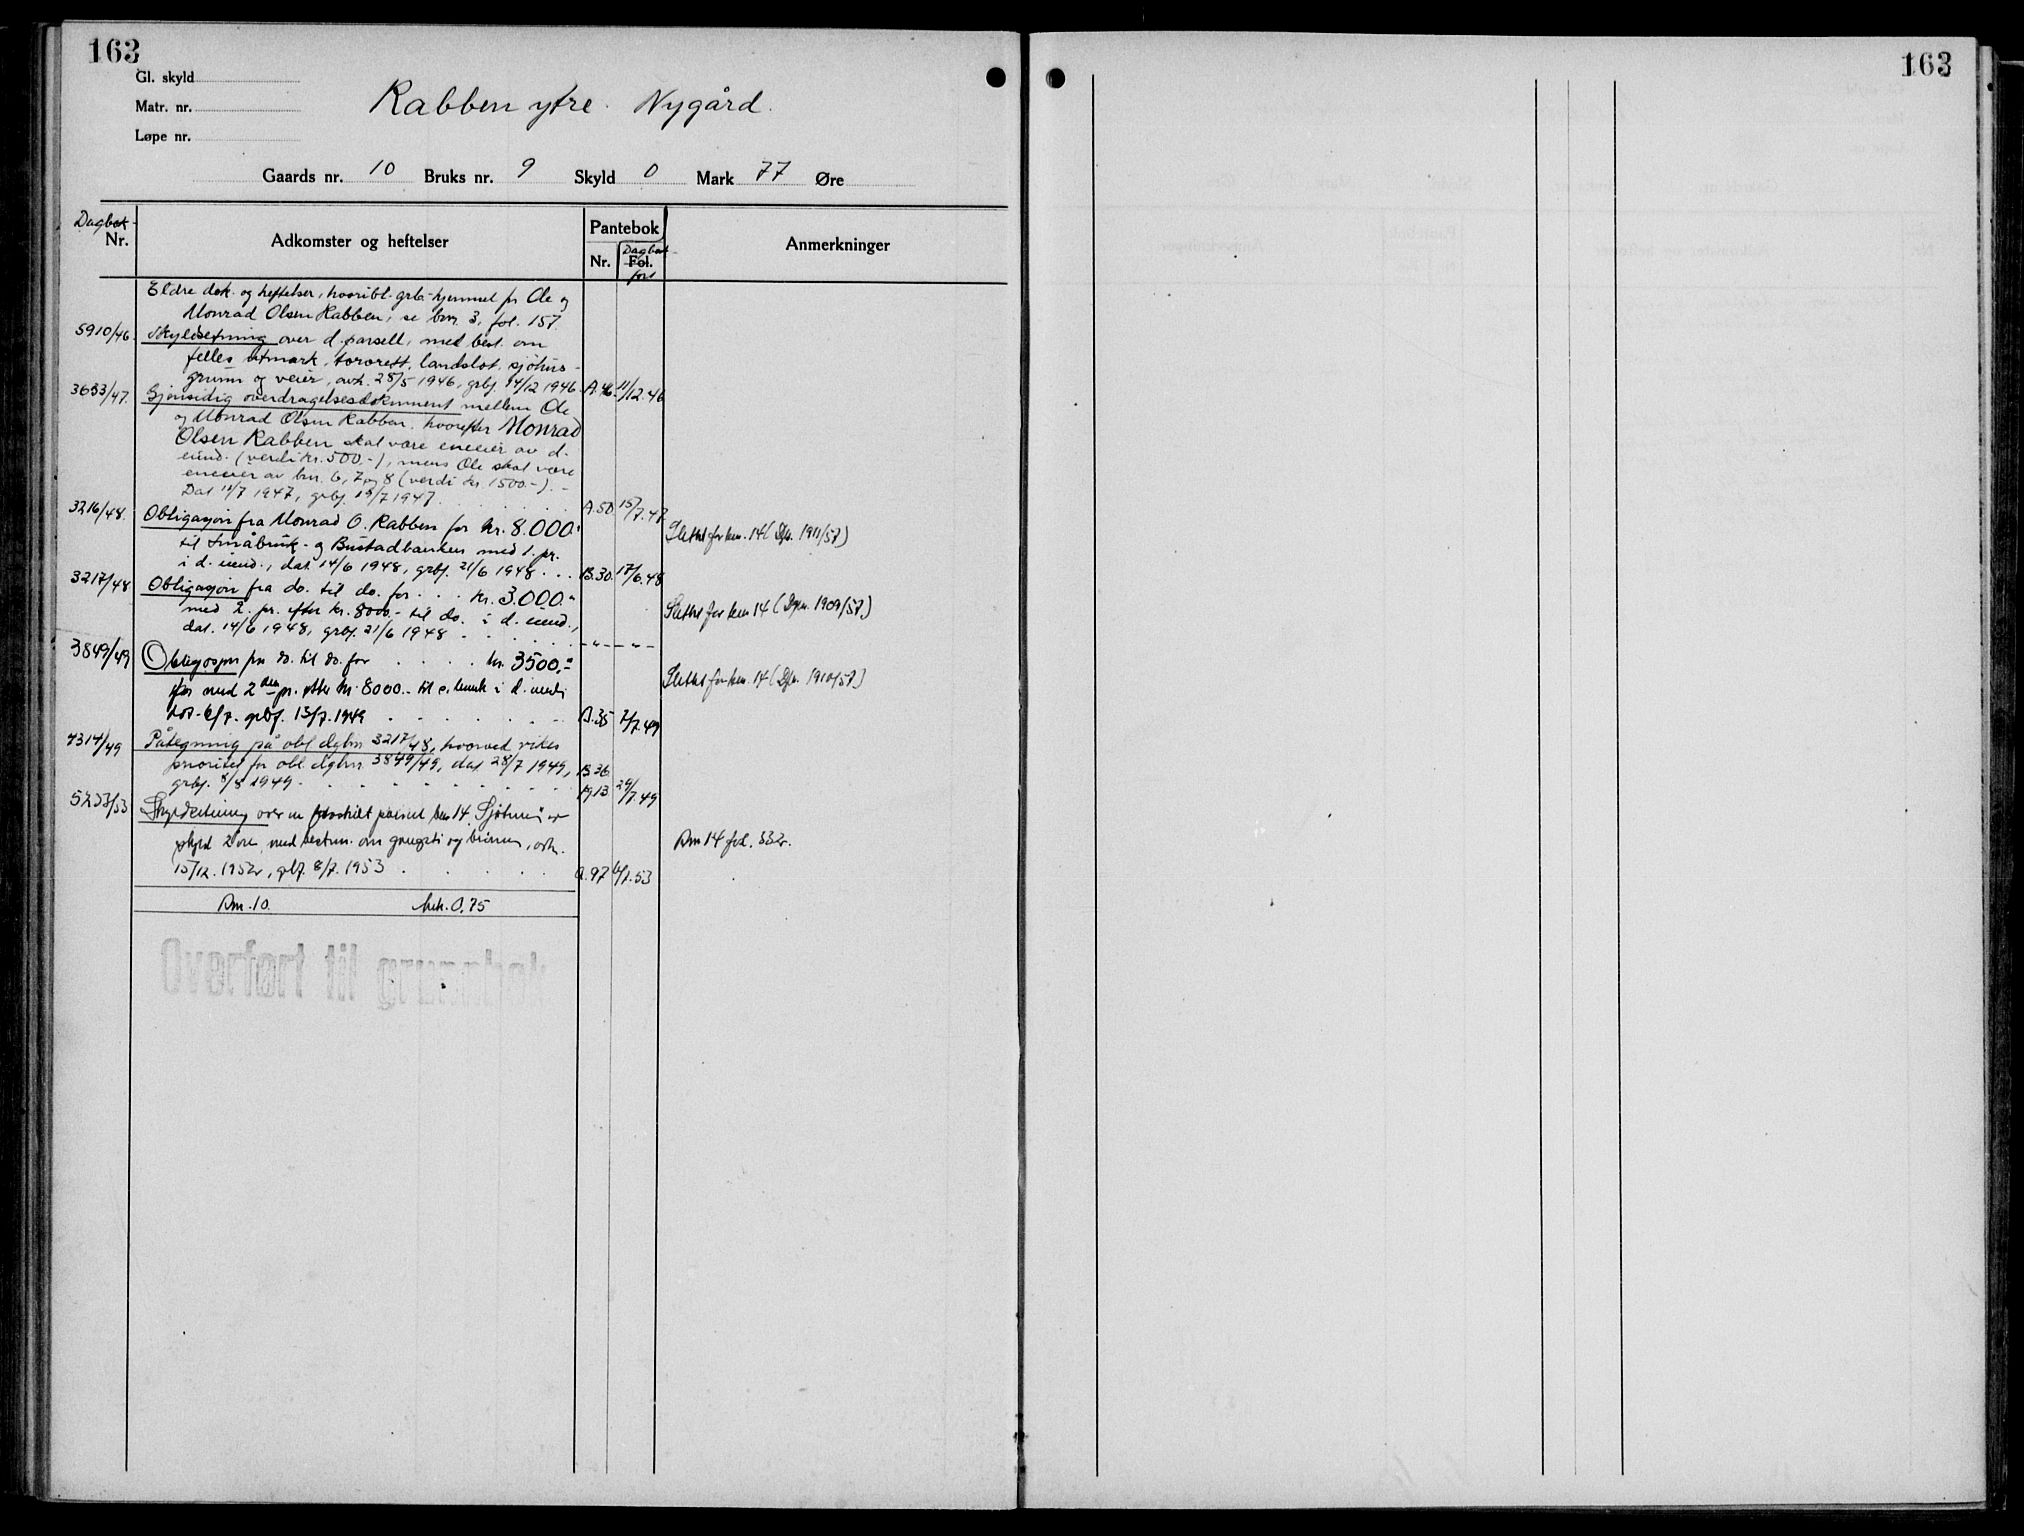 163
163
Gl. skyld
Matr. nr.
Løpe nr.
Rabben ytre. Nygård.
Gaards nr. 10 Bruks nr. 9 Skyld 0 Mark 77 Øre
Dagbok-
Nr.
Adkomster og heftelser
Pantebok
Nr.
Dagbok
Fol.
ført
Anmerkninger
Eldre dok. og heftelser, hvoribl. grb.-hjemmel for Ole og
Monrad Olsen Rabben, se bnr. 3, fol. 157.
5910/46. Skyldsetning over d. parsell, med best. om
felles utmark, torvrett, landslot, sjøhus-
grunn og veier, avh. 28/5 1946, grbf. 14/12 1946. A.46. 11/12.46
3633/47. Gjensidig overdragelsesdokument mellem Ole
og Monrad Olsen Rabben, hvorefter Monrad
Olsen Rabben skal være eneeier av d.
eiend. (verdi kr. 500,-), mens Ole skal være
eneeier av bnr. 6, 7 og 8 (verdi kr. 1500.-). -
Dat 11/7 1947, grbf. 19/7 1947. A.50 15/7.47
3216/48. Obligasjon fra Monrad O. Rabben for kr. 8.000.-
til Småbruk- og Bustadbanken med 1. pr.
i d. eiend., dat. 14/6 1948, grbf. 21/6 1948 . . . B.30. 17/6.48
Slettet for bnr. 14 (Dfn. 1911/57)
3217/48 Obligasjon fra do. til do. for . . . kr. 3.000.-
med 2. pr. efter kr. 8000.- til do. i d. eiend.,
dat. 14/6 1948, grbf. 21/6 1948 - " - " - -
Slettet for bnr 14 (Dgn. 1909/57.)
3849/49 Obligasjon fra do. til do. for . . . . kr. 3500,-
med 2den pr. etter kr. 8000.- til s. bank i d. eiend.
dat. 6/7. grbf. 13/7.1949 B.35 7/7.49
Slettet for bnr. 14 (Dfn. 1910/57)
4314/49 Påtegning på obl. dgbnr 3217/48, hvorved vikes
prioritet for obl. dgbnr 3849/49, dat 28/7 1949, B 36
grbf. 8/8 1949. 13 29/7.49
5233/53 Skyldsetning over en fraskilt parsell bnr 14 "Sjøtun" av
skyld 2 øre, med bestem. om gangsti og brønn, avh.
15/12. 1952, grbf. 8/7. 1953 A.97 1/7.53
Bnr 14 fol. 332.
Bnr. 10. Mrk. 0,75
Overført til grunnbok.